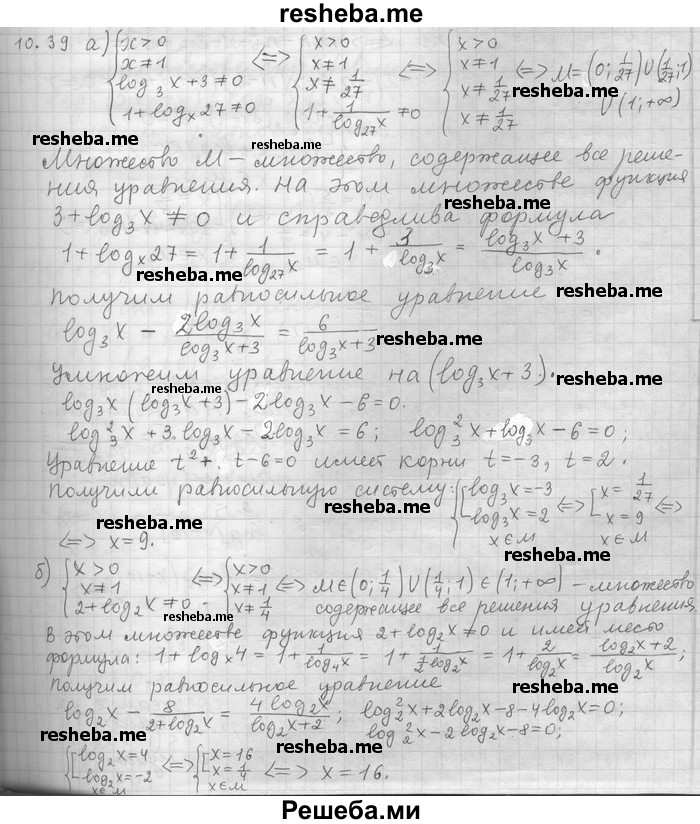 resheba.me
10.39 а) { x>0 x≠1 log₃x+3≠0 1+logₓ27≠0 <=> { x>0 x≠1 x≠1/27 1+1/log₂₇x ≠0 <=> { x>0 x≠1 x≠1/27 x≠1/27 <=> M=(0;1/27)U(1/27;1)U(1;+∞)
resheba.me resheba.me resheba.me
Множество M – множество, содержащее все реше-
ния уравнения. На этом множестве функция
resheba.me
3+log₃x≠0 и справедлива формула
1+logₓ27=1+1/log₂₇x=1+3/log₃x=(log₃x+3)/log₃x.
resheba.me
Получим равносильное уравнение resheba.me
log₃x – 2log₃x/(log₃x+3) = 6/(log₃x+3) resheba.me
Умножим уравнение на (log₃x+3).
resheba.me resheba.me
log₃x(log₃x+3)–2log₃x–6=0.
log₃²x+3·log₃x–2log₃x=6; log₃²x+log₃x–6=0;
Уравнение t²+t–6=0 имеет корни t=–3, t=2.
resheba.me
Получили равносильную систему: {[log₃x=–3 log₃x=2 x∈M <=> {[x=1/27 x=9 x∈M <=>
resheba.me
<=> x=9.
resheba.me
б) { x>0 x≠1 2+log₂x≠0 <=> { x>0 x≠1 x≠1/4 <=> M∈(0;1/4)U(1/4;1)∈(1;+∞) – множество
содержащее все решения уравнения,
resheba.me
В этом множестве функция 2+log₂x≠0 и имеет место
формула: 1+logₓ4=1+1/log₄x=1+1/(½log₂x)=1+2/log₂x=(log₂x+2)/log₂x;
Получим равносильное уравнение resheba.me
log₂x–8/(2+log₂x)=4log₂x/(log₂x+2); log₂²x+2log₂x–8–4log₂x=0;
log₂²x–2log₂x–8=0;
resheba.me
{[log₂x=4 log₂x=–2 x∈M <=> {[x=16 x=1/4 x∈M <=> x=16.
resheba.me
Решеба.ми